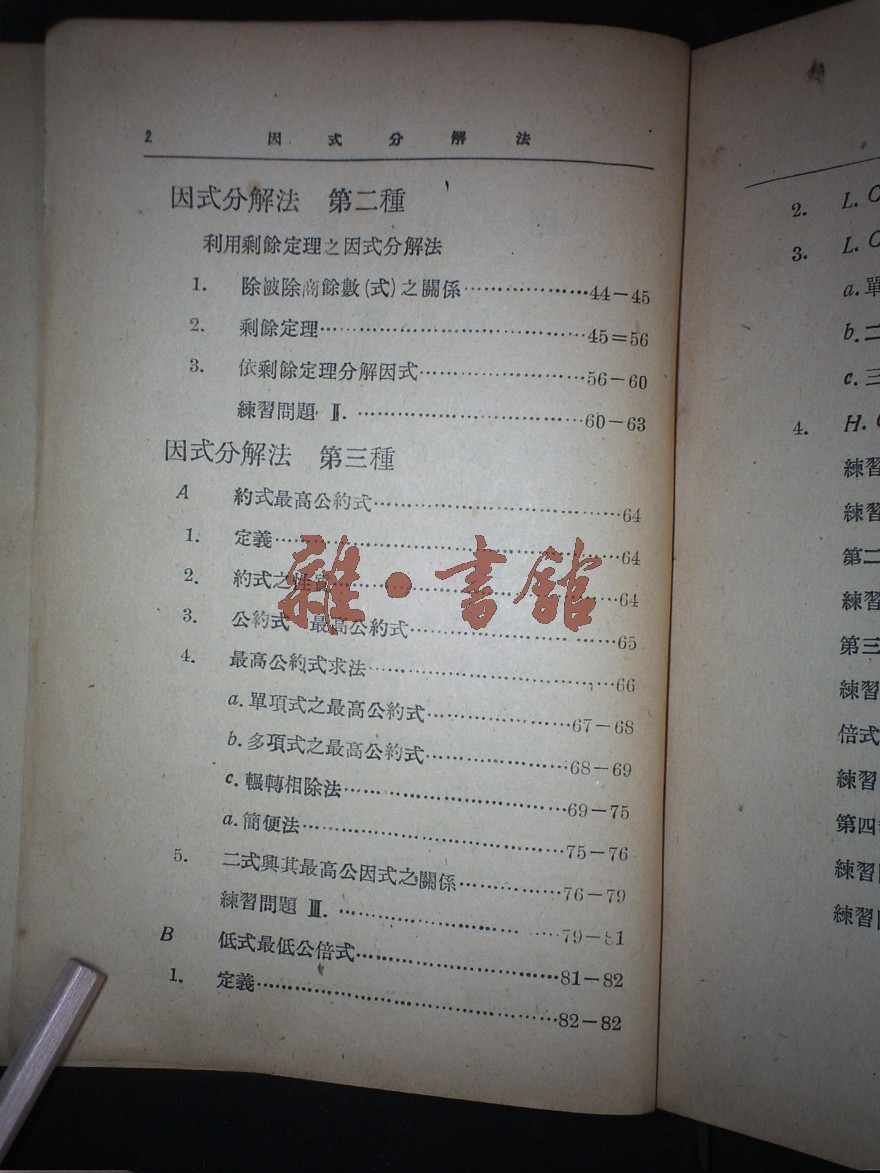 2 因式分解法
因式分解法 第二種
利用剩餘定理之因式分解法
1. 除被除商餘數(式)之關係………………44—45
2. 剩餘定理………………………………45=56
3. 依剩餘定理分解因式……………………56—60
練習問題 Ⅱ. ……………………………60—63
因式分解法 第三種
A 約式最高公約式………………………………64
1. 定義……………………………………………64
2. 約式之性質……………………………………64
3. 公約式 最高公約式…………………………65
4. 最高公約式求法………………………………66
a. 單項式之最高公約式…………………67—68
b. 多項式之最高公約式…………………68—69
c. 輾轉相除法……………………………69—75
a. 簡便法…………………………………75—76
5. 二式與其最高公因式之關係……………76—79
練習問題 Ⅲ. ……………………………79—81
B 低式最低公倍式…………………………81—82
1. 定義………………………………………82—82
雜·書館
2. L. C
3. L. C
a. 單
b. 二
c. 三
4. H.
練習
練習
第二
練習
第三
練習
倍式
練習
第四
練習
練習